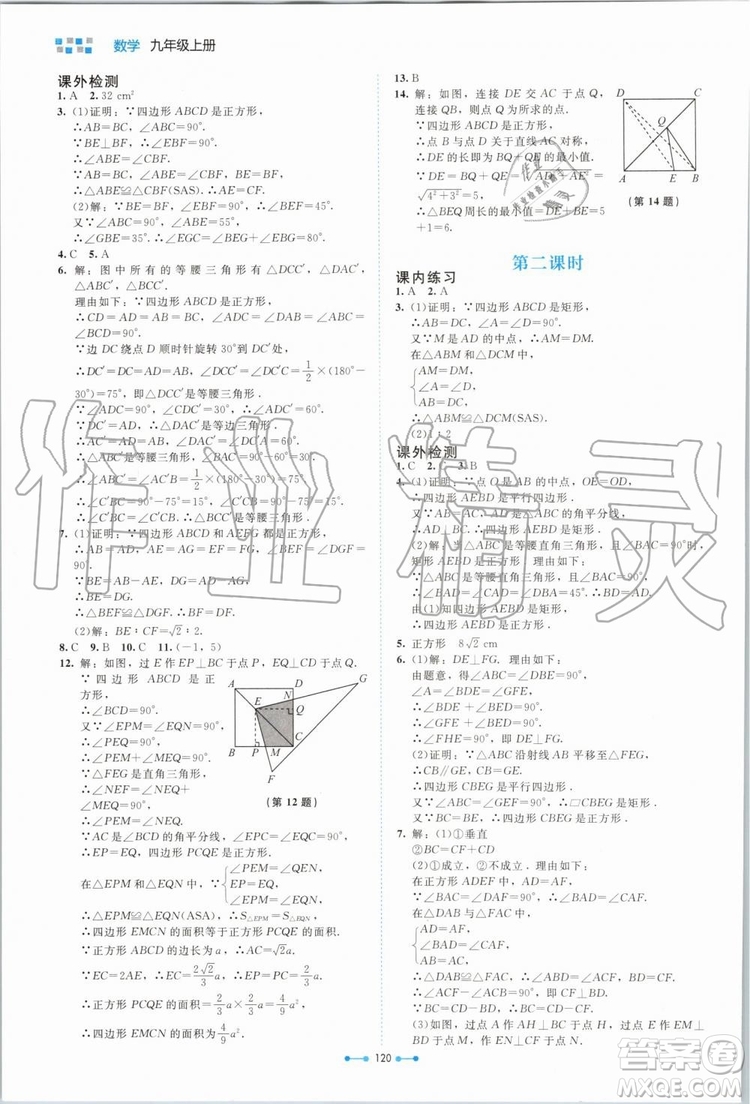 数学 九年级上册
课外检测
1. A 2. 32 cm²
3. (1)证明：∵四边形 ABCD 是正方形，
∴AB=BC，∠ABC=90°．
∵BE⊥BF，∴∠EBF=90°．
∴∠ABE=∠CBF．
∴△ABE≌△CBF(SAS)．∴AE=CF．
(2)解：∵BE=BF，∴∠BEF=45°．
又∵∠ABC=90°，∠ABE=55°，
∴∠GBE=35°．∴∠EGC=∠BEG+∠GBE=80°．
4. C 5. A
6. 解：图中所有的等腰三角形有△DCC′，△DAC′，
△ABC′，△BCC′．
理由如下：∵四边形 ABCD 是正方形，
∴CD=AD=AB=BC，∠ADC=∠DAB=∠DCB=
90°．
∵边 DC 绕点 D 顺时针旋转 30°到 DC′，
∴DC′=DC，∠CDC′=30°．∴∠DCC′=1/2×(180°-
30°)=75°，△DCC′是等腰三角形．
∵∠ADC=90°，∠CDC′=30°，∴∠ADC′=60°．
∴△DAC′是等边三角形．
∴AC′=AD=AB，∠DAC′=60°．
∴△ABC′是等腰三角形，∠C′AB=90°-60°=30°．
∵AB=AC′，∴∠ABC′=1/2×(180°-30°)=75°．
∴∠C′BC=90°-75°=15°，∠BCC′=90°-75°=15°．
∴∠C′BC=∠C′CB．∴△BCC′是等腰三角形．
7. (1)证明：∵四边形 ABCD 和 AEFG 都是正方形，
∴AB=AD，AE=AG，∠BAD=∠EAG=
90°．
∵BE=AB-AE，DG=AD-AG，
∴BE=DG．
∴△ABE≌△CDG(SAS)．
(2)解：BE∶CF=√2∶2．
8. C 9. B 10. C 11. (-1，5)
12. 解：如图，过 E 作 EP⊥BC 于点 P，EQ⊥CD 于点 Q，
∵四边形 ABCD 是正
方形，
∴∠BCD=90°．
又∵∠EPM=∠EQN=90°，
∴∠PEQ=90°．
∴∠PEM+∠MEQ=90°．
∵△FEG 是直角三角形，
∴∠NEF=∠NEQ+
∠MEQ=90°．
∴∠PEM=∠NEQ．
(第 12 题)
∵AC 是∠BCD 的角平分线，∠EPC=∠EQC=90°，
∴EP=EQ，四边形 PCQE 是正方形．
在△EPM 和△EQN 中，
∠PEM=∠QEN，
EP=EQ，
∠EPM=∠EQN，
∴△EPM≌△EQN(ASA)，∴S△EPM=S△EQN．
∴四边形 EMCN 的面积等于正方形 PCQE 的面积．
∵正方形 ABCD 的边长为 a，∴AC=√2a．
∵EC=2AE，∴EC=2√2/3 a．∴EP=PC=2/3 a．
∴正方形 PCQE 的面积=2/3 a×2/3 a=4/9 a²．
∴四边形 EMCN 的面积=4/9 a²．
13. B
14. 解：如图，连接 DE 交 AC 于点 Q，
连接 QB，则点 Q 为所求的点．
∵四边形 ABCD 是正方形，
∴点 B 与点 D 关于直线 AC 对称，
∴DE 的长即为 BQ+QE 的最小值．
∵DE=BQ+QE=√AD²+AE²=
√4²+3²=5，
∴△BEQ 周长的最小值=DE+BE=5+1=6．
(第 14 题)
第二课时
课内练习
1. A 2. A
3. (1)证明：∵四边形 ABCD 是矩形，
∴AB=DC，∠A=∠D=90°．
又∵M 是 AD 的中点，∴AM=DM．
在△ABM 和△DCM 中，
AM=DM，
∠A=∠D，
AB=DC，
∴△ABM≌△DCM(SAS)．
(2)1∶2
课外检测
1. C 2. C 3. B
4. (1)证明：∵点 O 是 AB 的中点，OE=OD，
∴四边形 AEBD 是平行四边形．
∵AB=AC，AD 是△ABC 的角平分线，
∴AD⊥BC．∴四边形 AEBD 是矩形．
(2)解：当△ABC 是等腰直角三角形，且∠BAC=90°时，
矩形 AEBD 是正方形．理由如下：
∵△ABC 是等腰直角三角形，且∠BAC=90°，
∴AD=BD．
由(1)知四边形 AEBD 是矩形，
∴四边形 AEBD 是正方形．
5. 正方形 8√2 cm
6. (1)解：DE⊥FG．理由如下：
由题意，得
∠A=∠EDB=∠GFE，
∠ABC=∠DBE=90°，
∴∠BDE+∠BED=90°．
∴∠GFE+∠BED=90°．
∴∠FHE=90°，即 DE⊥FG．
(2)证明：∵△ABC 沿射线 AB 平移至△FEG，
∴CB∥GE，CB=GE．
∴四边形 CBEG 是平行四边形．
∵∠ABC=∠GEF=90°，∴▱CBEG 是矩形．
又∵BC=BE，∴四边形 CBEG 是正方形．
7. 解：(1)①垂直
②BC=CF+CD
(2)①成立，②不成立．理由如下：
在正方形 ADEF 中，AD=AF．
∵∠BAC=∠DAF=90°，
∴∠BAD=∠CAF．
在△DAB 和△FAC 中，
AD=AF，
∠BAD=∠CAF，
AB=AC，
∴△DAB≌△FAC(SAS)．
∴∠ABD=∠ACF，DB=CF．
∵∠ACB=∠ABC=45°，
∴∠ABD=180°-45°=135°．
∴∠BCF=∠ACF-∠ACB=135°-45°=90°．
∴CF⊥BC．
∵CD=DB+BC，DB=CF，∴CD=CF+BC．
(3)如图，过 A 作 AH⊥BC 于点 H，过 E 作 EM⊥BD
于点 M，EN⊥CF 于点 N．
120
作业精灵
答案圈
MXQE.COM